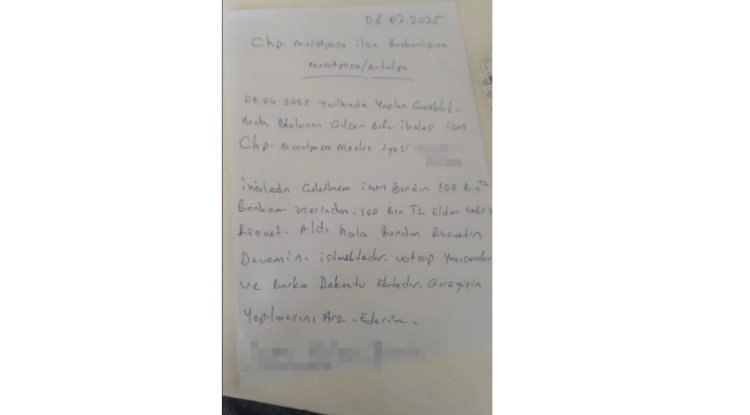 08.07.2025
Chp. muratpaşa ilçe Başkanlığına
muratpaşa/Antalya
2025 Tarihinde Yapılan
Mah Bulunan Büfe ihalesi icın
Chp. muratpasa Meclis üyesi
icın Benden 100 Bin TL
üzerinden. 100 Bin TL Elden
Rüşvet. Aldı hala Benden Rüşvetin
Devamını istemektedir. vatsap Yazısmaları
ve Banka Dekontu Ektedir. Gereğinin
Yapılmasını Arz. Ederim.